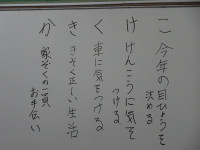 こ 今年の目ひょうを
決める
け けんこうに気を
つける
く 車に気をつける
き きそく正しい生活
か 家ぞくの一員
お手伝い